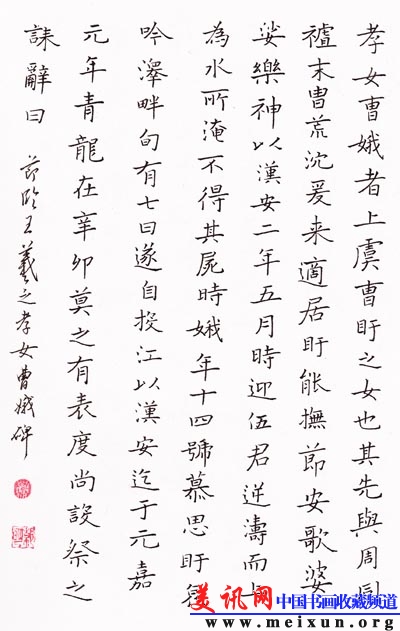 孝女曹娥者上虞曹盱之女也其先與周同
末胄荒沈爰来適居盱能撫節安歌婆
娑樂神以漢安二年五月時迎伍君逆濤而上
為水所淹不得其屍時娥年十四號慕思盱哀
吟澤畔旬有七日遂自投江以漢安迄于元嘉
元年青龍在辛卯莫之有表度尚設祭之
誄辭曰
节临王羲之孝女曹娥碑
美讯网 中国书画收藏频道
www.meixun.org